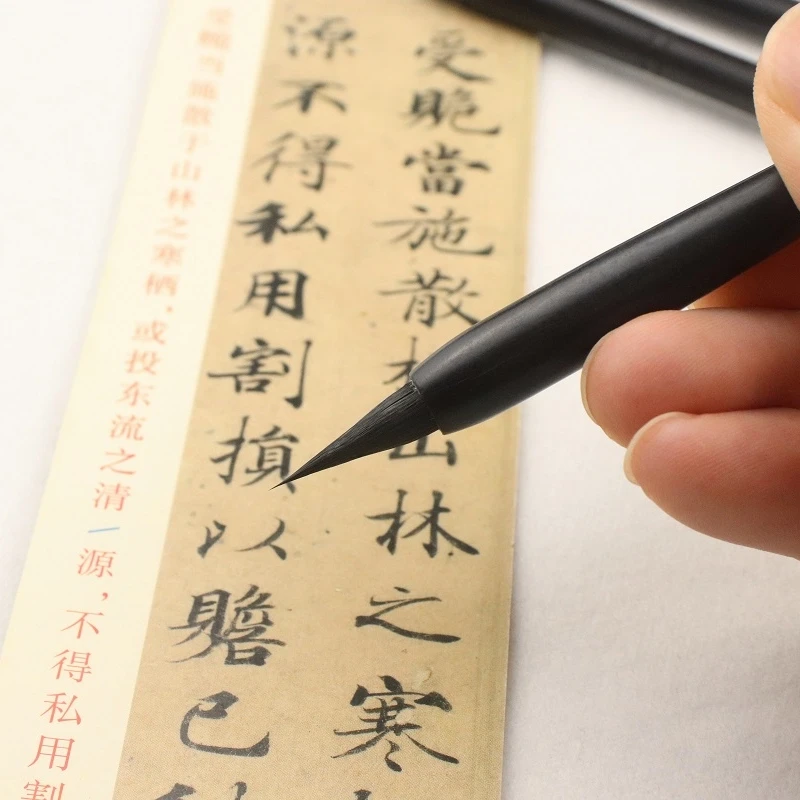 受當施散山林之寒
源不得私用割損以贍己
受當施散于山林之寒栖，或投东流之清源，不得私用割